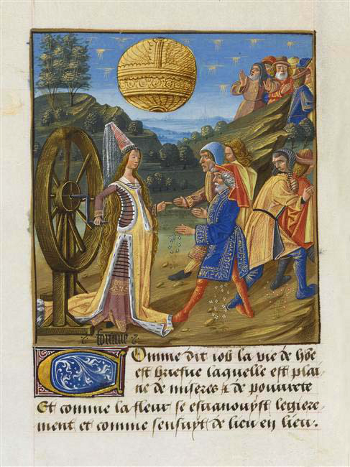 fortune
COmme dit iob la vie de hõe
est briefue laquelle est plai
ne de miseres & de pouurete
Et comme la fleur se esuanouyst legiere
ment et comme senfuyt de lieu en lieu.